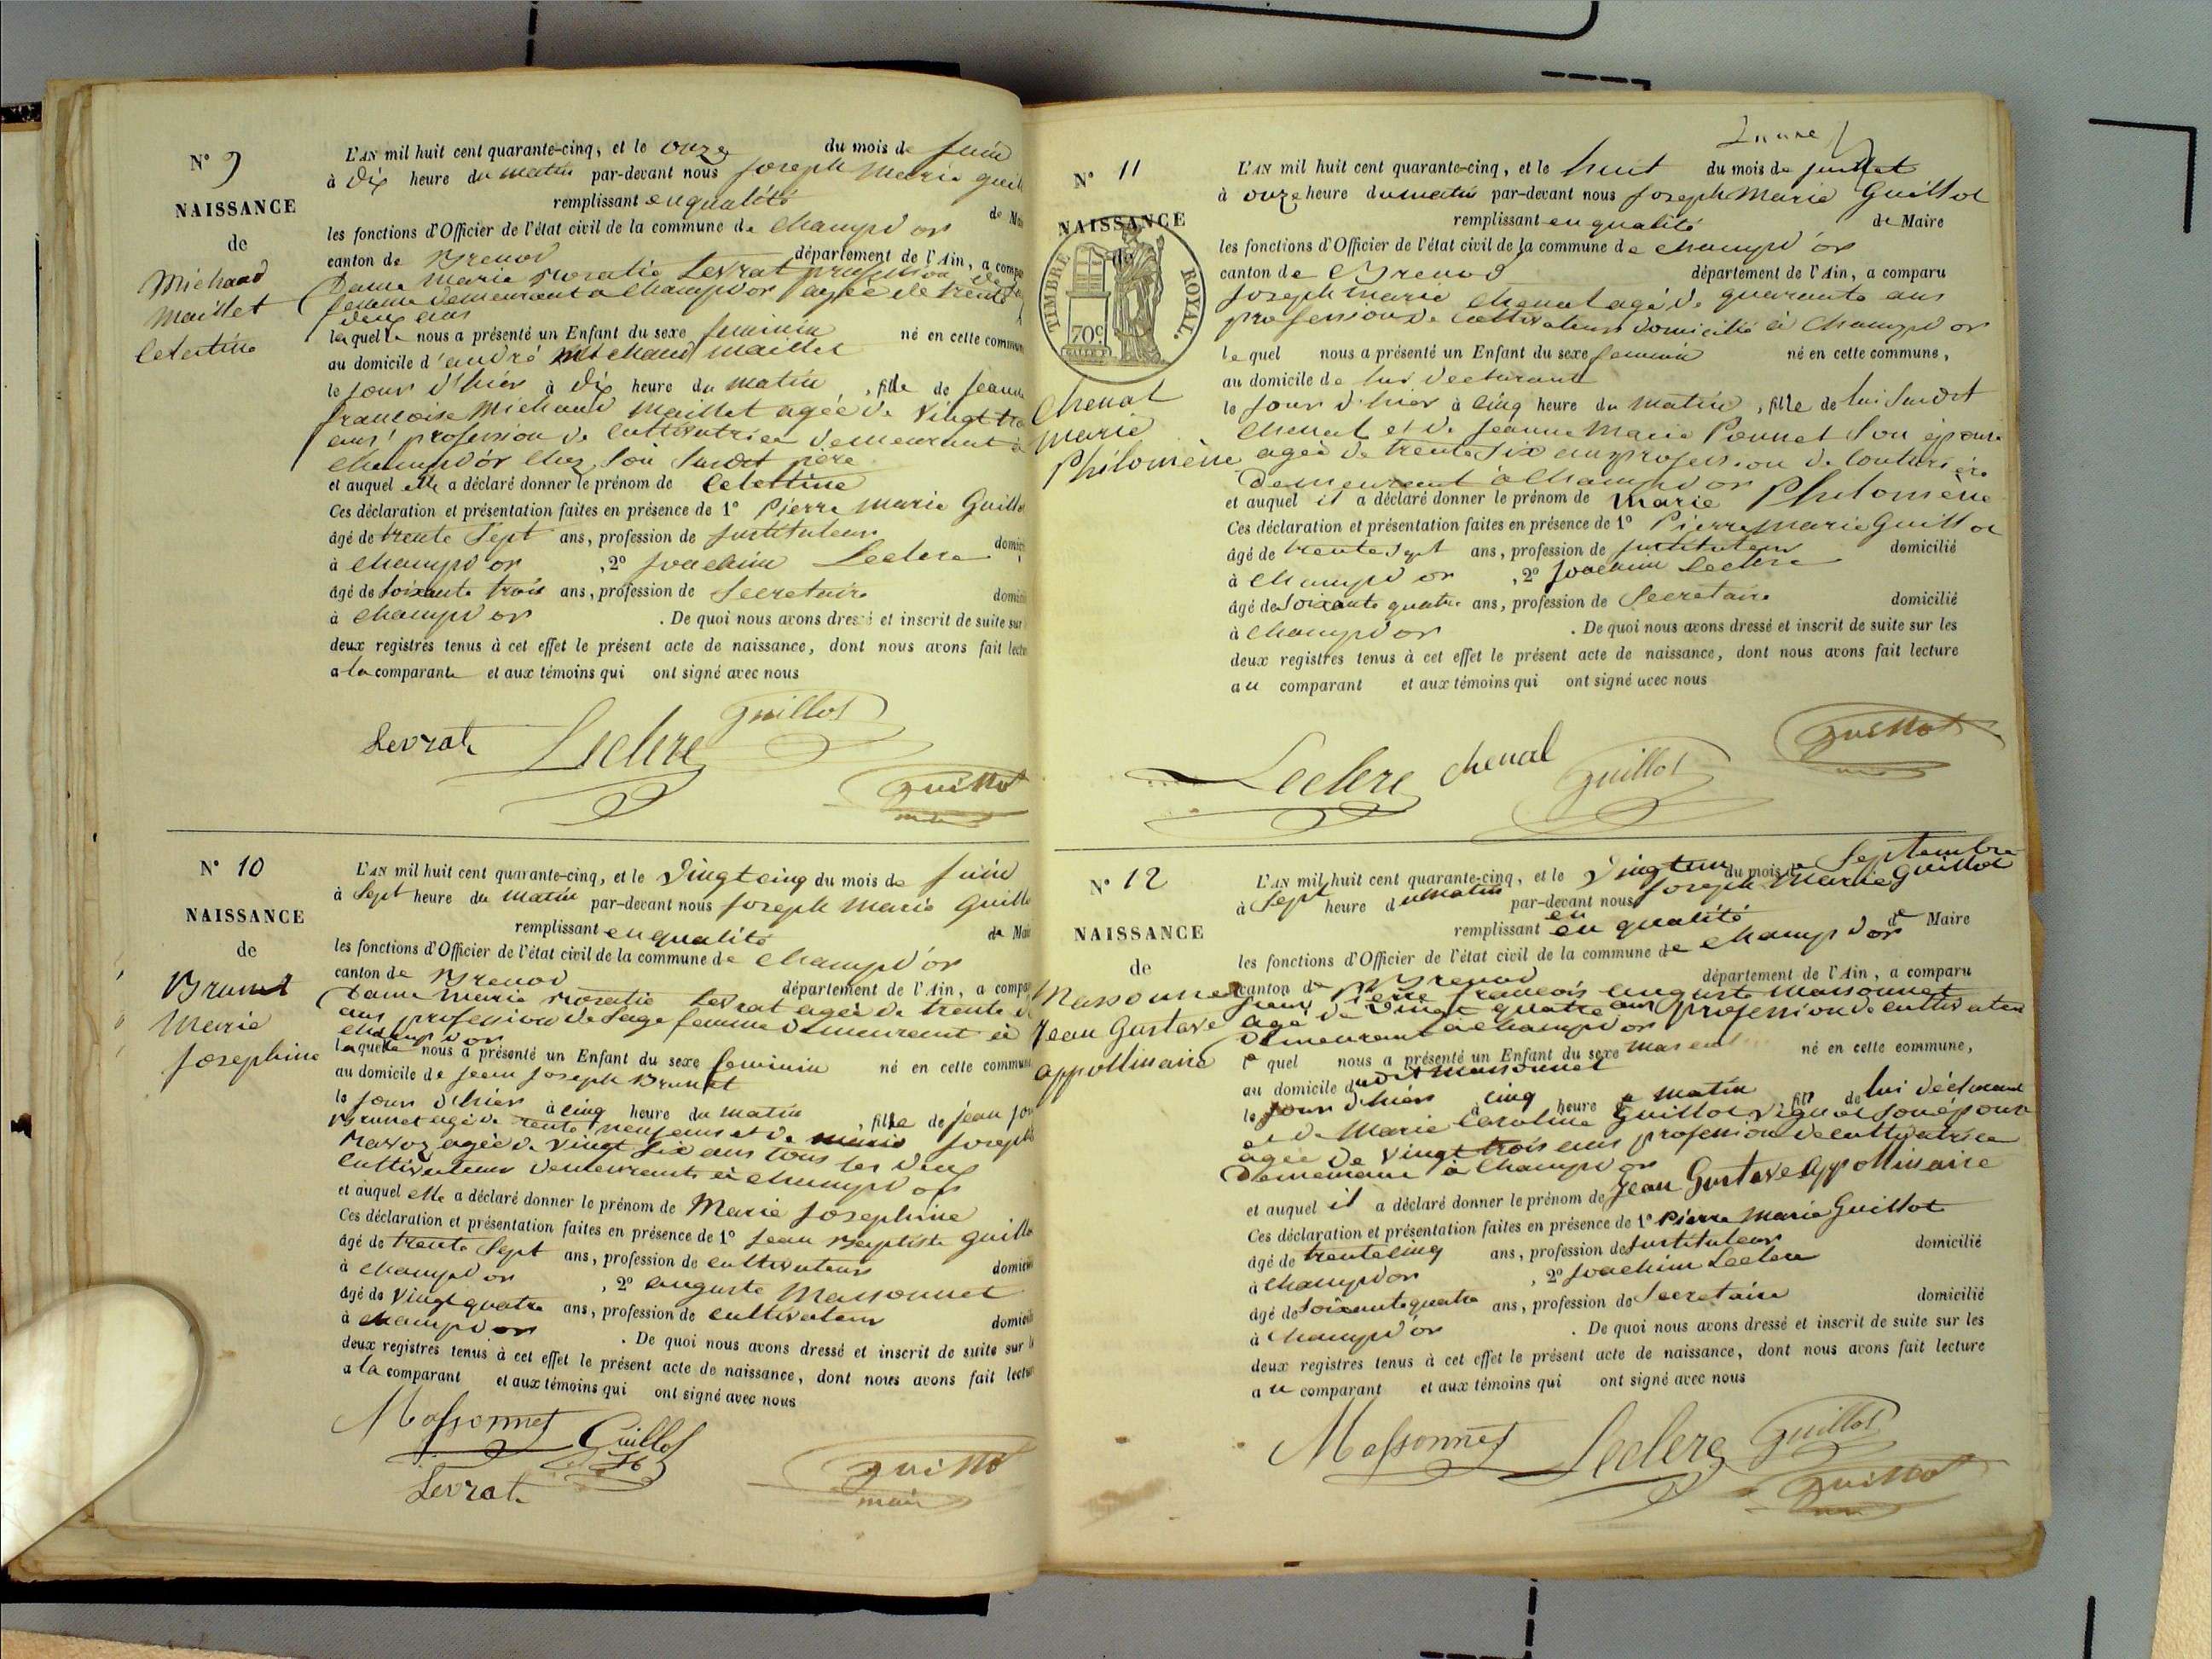 N° 9
NAISSANCE
de
Michaud
Maillet
Celestine
L'AN mil huit cent quarante-cinq, et le onze du mois de Juin
à dix heure du matin par-devant nous Joseph Marie Guill
remplissant en qualité de Mai
les fonctions d'Officier de l'état civil de la commune de Champd'or
canton de Brenod département de l'Ain, a compa
Dame Marie Rosalie Levrat profession de sage
femme demeurant à Champd'or agée de trente
deux ans
laquelle nous a présenté un Enfant du sexe feminin né en cette commun
au domicile d'andré Michaud Maillet
le jour d'hier à dix heure du matin, fille de Jeanne
françoise Michaud Maillet agée de vingt tro
ans profession de cultivatrice demeurant à
Champd'or chez son susdit père
et auquel elle a déclaré donner le prénom de Celestine
Ces déclaration et présentation faites en présence de 1° Pierre Marie Guillo
âgé de trente Sept ans, profession de Instituteur domici
à Champd'or, 2° Joachim Leclerc
âgé de Soixante trois ans, profession de Secretaire domici
à Champd'or. De quoi nous avons dressé et inscrit de suite sur
deux registres tenus à cet effet le présent acte de naissance, dont nous avons fait lectu
a la comparante et aux témoins qui ont signé avec nous
Levrat Leclerc Guillot
Guillot
maire
N° 10
NAISSANCE
de
Brunet
Marie
Josephine
L'AN mil huit cent quarante-cinq, et le vingt cinq du mois de Juin
à Sept heure du matin par-devant nous Joseph Marie Guillo
remplissant en qualité de Mai
les fonctions d'Officier de l'état civil de la commune de Champd'or
canton de Brenod département de l'Ain, a compa
Dame Marie Rosalie Levrat agée de trente d
ans profession de Sage femme demeurant à
Champd'or
laquelle nous a présenté un Enfant du sexe feminin né en cette commune
au domicile de Jean Joseph Brunet
le jour d'hier à cinq heure du matin, fille de Jean Jos
Brunet agé de trente neuf ans et de Marie Joseph
Ravoz agée de vingt Six ans tous les deux
cultivateurs demeurants à Champd'or
et auquel elle a déclaré donner le prénom de Marie Josephine
Ces déclaration et présentation faites en présence de 1° Jean Baptiste Guillo
âgé de trente Sept ans, profession de cultivateur domicil
à Champd'or, 2° auguste Massonnet
âgé de vingt quatre ans, profession de cultivateur domicil
à Champd'or. De quoi nous avons dressé et inscrit de suite sur l
deux registres tenus à cet effet le présent acte de naissance, dont nous avons fait lectur
a la comparant et aux témoins qui ont signé avec nous
Massonnet Guillot
Levrat
Guillot
maire
N° 11
NAISSANCE
de
TIMBRE ROYAL.
70c
Chenal
Marie
Philomène
L'AN mil huit cent quarante-cinq, et le huit du mois de juillet
à onze heure du matin par-devant nous Joseph Marie Guillot
remplissant en qualité de Maire
les fonctions d'Officier de l'état civil de la commune de Champd'or
canton de Brenod département de l'Ain, a comparu
Joseph Marie Chenal agé de quarante ans
profession de Cultivateur domicilié à Champd'or
le quel nous a présenté un Enfant du sexe feminin né en cette commune,
au domicile de lui declarant
le jour d'hier à cinq heure du matin, fille de lui Susdit
Chenal et de Jeanne Marie Ponnet Son épouse
agée de trente Six ans profession de Couturière
demeurant à Champd'or
et auquel il a déclaré donner le prénom de Marie Philomène
Ces déclaration et présentation faites en présence de 1° Pierre Marie Guillot
âgé de trente Sept ans, profession de Instituteur domicilié
à Champd'or, 2° Joachim Leclerc
âgé de Soixante quatre ans, profession de Secretaire domicilié
à Champd'or. De quoi nous avons dressé et inscrit de suite sur les
deux registres tenus à cet effet le présent acte de naissance, dont nous avons fait lecture
au comparant et aux témoins qui ont signé avec nous
Leclerc chenal Guillot
Guillot
N° 12
NAISSANCE
de
Massonnet
Jean Gustave
appollinaire
L'AN mil huit cent quarante-cinq, et le vingt un du mois de Septembre
à Sept heure du matin par-devant nous Joseph Marie Guillot
remplissant en qualité de Maire
les fonctions d'Officier de l'état civil de la commune de Champd'or
canton de Brenod département de l'Ain, a comparu
Sieur Pierre françois auguste Massonnet
agé de vingt quatre ans profession de cultivateur
demeurant à Champd'or
le quel nous a présenté un Enfant du sexe masculin né en cette commune,
au domicile dudit Massonnet
le jour d'hier à cinq heure du matin, fils de lui déclarant
et de Marie Caroline Guillot Vignot son épouse
agée de vingt trois ans profession de cultivatrice
demeurant à Champd'or
et auquel il a déclaré donner le prénom de Jean Gustave appollinaire
Ces déclaration et présentation faites en présence de 1° Pierre Marie Guillot
âgé de trente cinq ans, profession de Instituteur domicilié
à Champd'or, 2° Joachim Leclerc
âgé de Soixante quatre ans, profession de Secretaire domicilié
à Champd'or. De quoi nous avons dressé et inscrit de suite sur les
deux registres tenus à cet effet le présent acte de naissance, dont nous avons fait lecture
au comparant et aux témoins qui ont signé avec nous
Massonnet Leclerc Guillot
Guillot